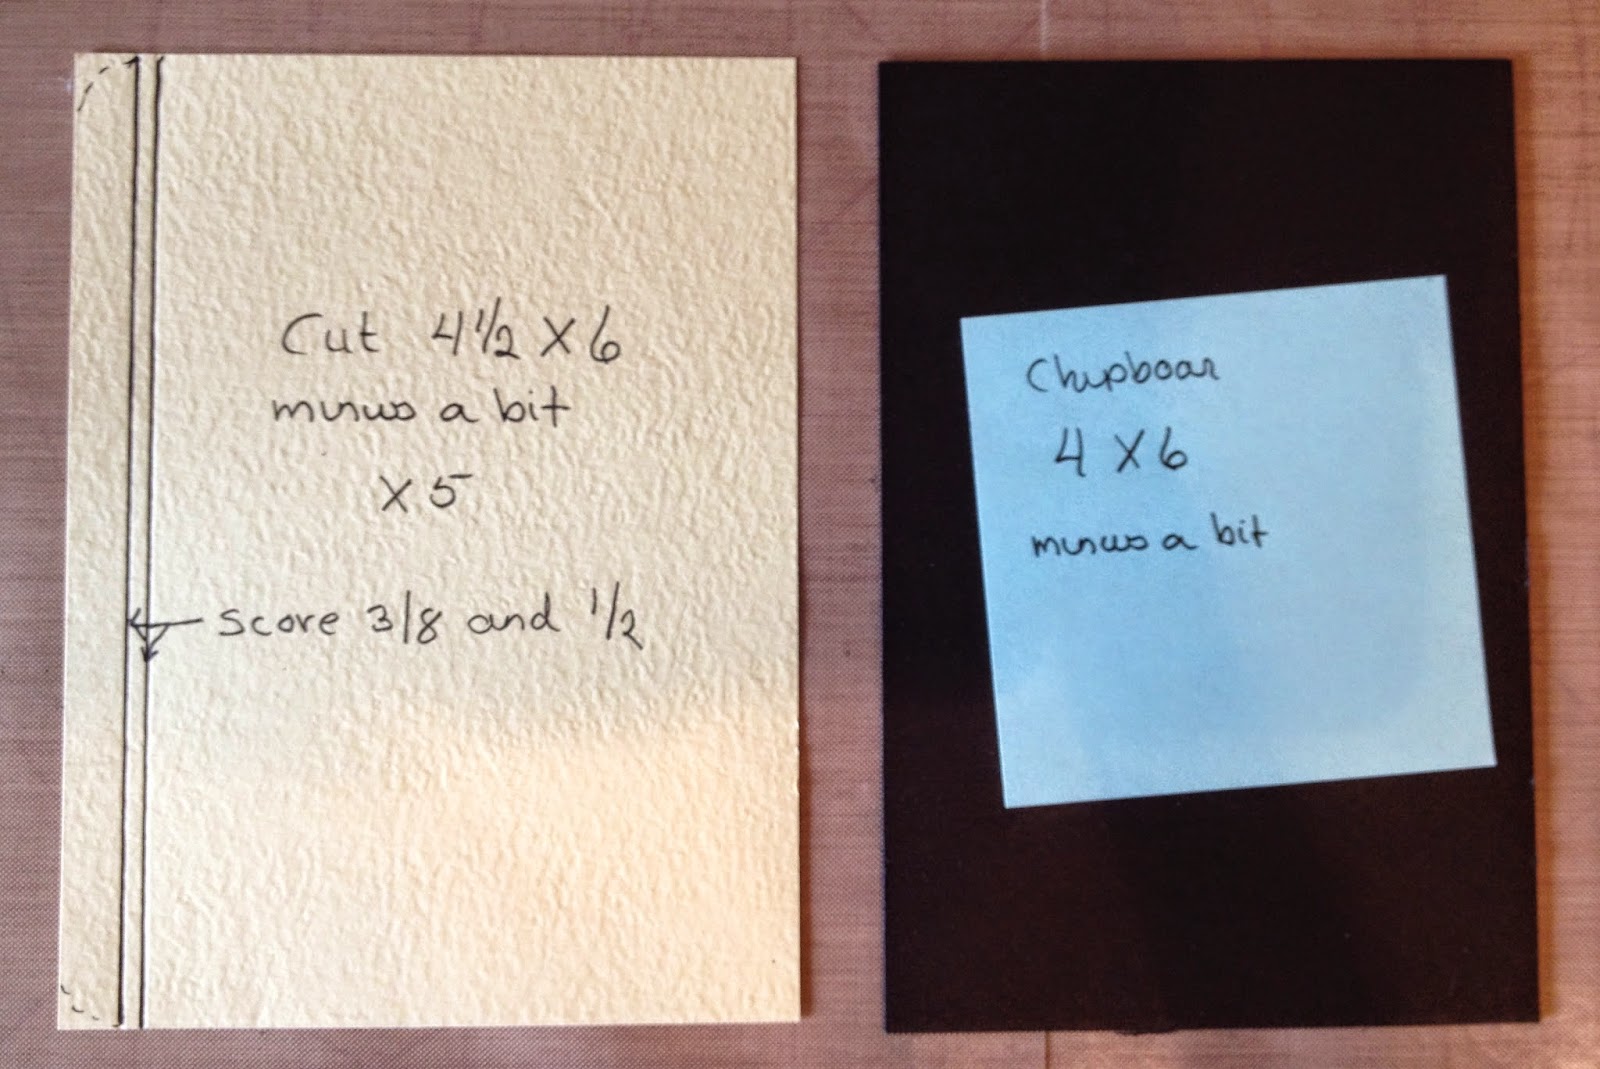 Cut 4 1/2 X 6
minus a bit
X 5
score 3/8 and 1/2
Chipboar
4 X 6
minus a bit